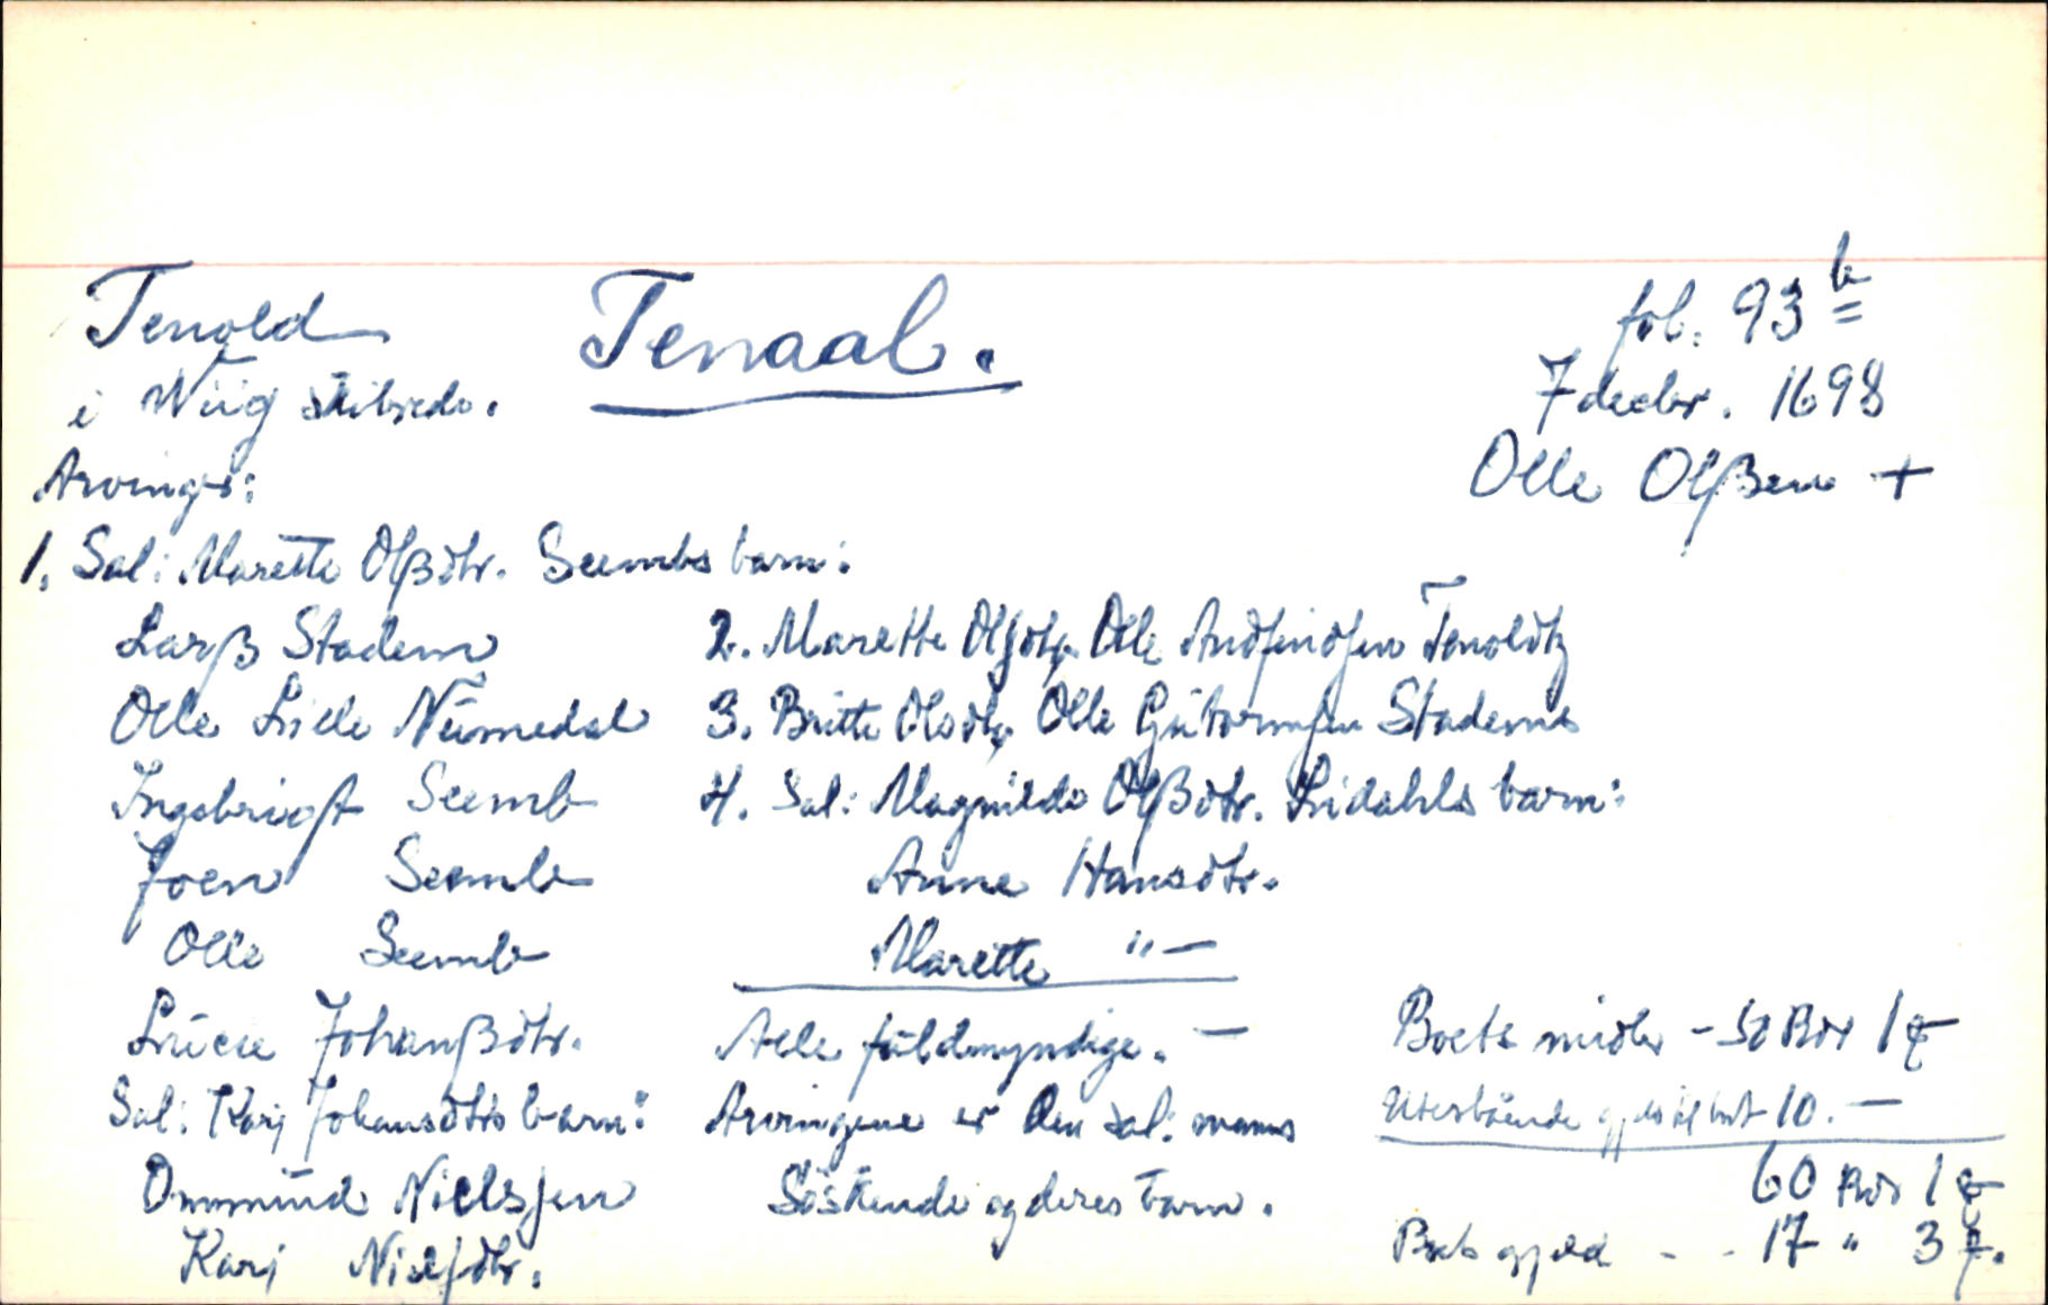 Tenold
Tenaal.
fol. 93 b
i Wiig skibrede.
7 decbr. 1698
Olle Olßen +
Arvinger:
1. Sal: Marette Olßdtr. Seembs barn:
Larß Stadem
Olle Lille Nummedal
Ingebrigt Seemb
Joen Seemb
Olle Seemb
Lucie Johanßdtr.
Sal: Karj Johansdtrs barn:
Ommund Nielsen
Karj Nielsdtr.
2. Marette Olsdtr. Olle Andfindsen Tenoldtz
3. Britte Olsdtr. Olle Guttormsen Stadems
4. Sal: Magnilde Olßdtr. Lidahls barn:
Anne Hansdtr.
Marette "—
Alle fuldmyndige. —
Arvingene er den sal. manns
Söskende og deres barn.
Boets midler - 50 Rdr 1
Utestående gjeld 10. —
60 Rdr 1
Boets gjeld - - 17 " 3